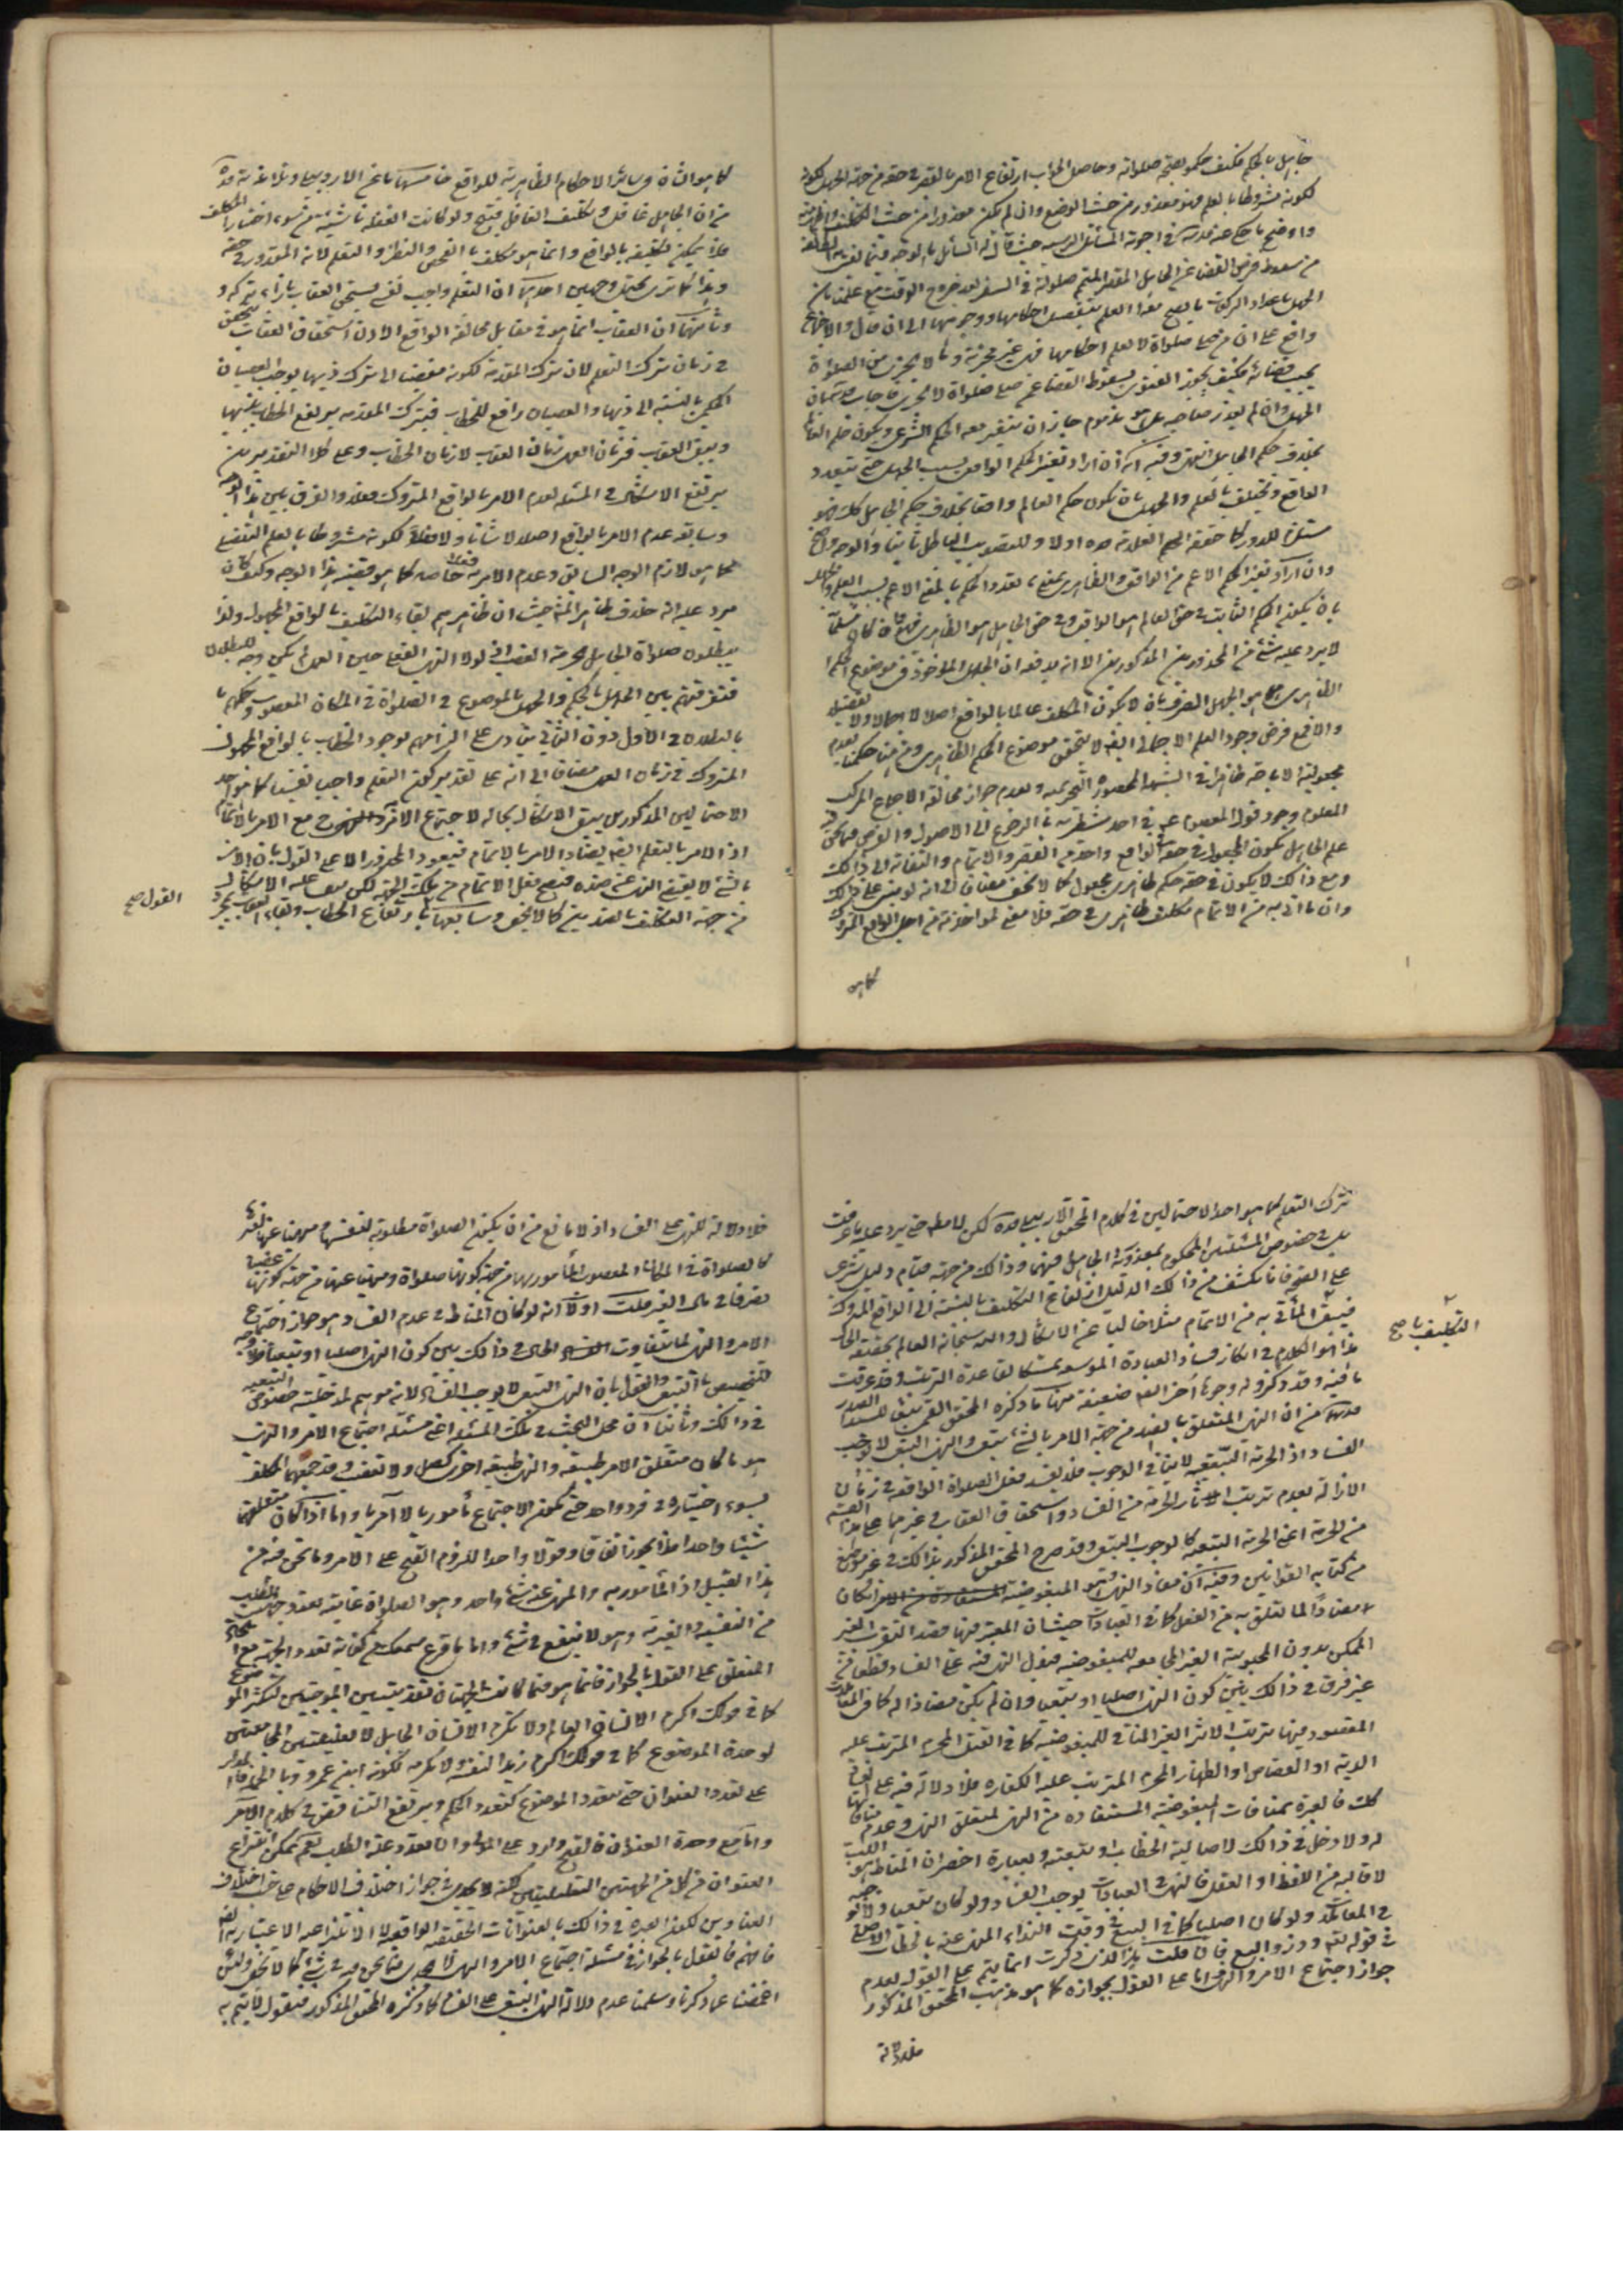 جاهل بالحكم فكيف حكموا بصحة صلواته وحاصل الجواب ارتفاع الامر بالقصر في حقه من جهة الجهل لكونه
لكونه مشروطا بالعلم فهو معذور من حيث الوضع وان لم يكن معذورا من حيث التكليف
واوضح ما حكي عنه قدس سره في اجوبة المسائل الرسية حيث قال له السائل ما الوجه فيما يفتي به الطائفة
من سقوط فرض القضاء عن الجاهل المقصر المتم صلوته في السفر بعد خروج الوقت مع علمنا بان
الجهل باعداد الركعات لا يصح معه العلم بتفصيل احكامها ووجوهها الى ان قال والاجماع
واقع على ان من صلى صلواة لا يعلم احكامها فهي غير مجزية وما لا يجزي من الصلواة
يجب قضائه فكيف يجوز الفتوى بسقوط القضاء عمن صلى صلواة لا تجزي فاجاب
الجهل وان لم يعذر صاحبه بل هو مذموم جاز ان يتغير معه الحكم الشرعي ويكون حكم العالم
بخلاف حكم الجاهل انتهى وفيه انه ان اراد تغير الحكم الواقعي بسبب الجهل حتى يتعدد
الواقع ويختلف بالعلم والجهل بان يكون حكم العالم واقعا بخلاف حكم الجاهل كذلك فهو
مستلزم للدور كما حققه العلامة اولا وللتصويب الباطل ثانيا والوجه واضح
وان اراد تغير الحكم الاعم من الواقعي والظاهري بمعنى تعدد الحكم بالمعنى الاعم بسبب العلم والجهل
بان يكون الحكم الثابت في حق العالم هو الواقعي وفي حق الجاهل هو الظاهري
لا يرد عليه شئ من المحذورين المذكورين الا انه يدفعه ان الجهل الماخوذ في موضوع الحكم
الظاهري انما هو الجهل الصرف بان لا يكون المكلف عالما بالواقع اصلا لا اجمالا ولا تفصيلا
والا فمع فرض وجود العلم الاجمالي لا يتحقق موضوع الحكم الظاهري ومن هنا حكمنا بعدم
مجعولية الاباحة ظاهرا في الشبهة المحصورة التحريمية وبعدم جواز مخالفة الاجماع المركب
المعلوم وجود قول المعصوم ع في احد شطريه في الرجوع الى الاصول والفرض فيما نحن
علم الجاهل بكون المجعول في حقه في الواقع واحد من القصر والاتمام والتفاته الى ذالك
ومع ذالك لا يكون في حقه حكم ظاهري مجعول كما لا يخفى مضافا الى انه لو بنى على ذالك
وان ما اتى به من الاتمام مكلف ظاهري في حقه فلا معنى لمواخذته من اجل الواقع المتروك
كما هو
كما هو الشان في سائر الاحكام الظاهرية للواقع خامسها ما عن الاردبيلي وتلميذيه قده
من ان الجاهل غافل وتكليف الغافل قبيح ولو كانت الغفلة ناشئة من سوء اختيار المكلف
فلا يمكن تكليفه بالواقع وانما هو مكلف بالفحص والنظر والتعلم لانه المقدور في حقه
وهذا كما ترى يحتمل وجهين احدهما ان التعلم واجب نفسي يستحق العقاب بازاء تركه و
وثانيهما ان العقاب انما هو في مقابل مخالفة الواقع الا ان استحقاق العقاب يتحقق
في زمان ترك التعلم لان ترك المقدمة لكونه مفضيا الى ترك ذيها يوجب العصيان
الحكمي بالنسبة الى ذيها والعصيان رافع للخطاب فبترك المقدمة يرتفع الخطاب بذيها
ويبقى العقاب فزمان العمل زمان العقاب لا زمان الخطاب وعلى كلا التقديرين
يرتفع الاشكال في المسئلة لعدم الامر بالواقع المتروك فعلا والفرق بين هذا الوجه
وسابقه عدم الامر بالواقع اصلا لا شانا ولا فعلا لكونه مشروطا بالعلم المنتفي
كما هو لازم الوجه السابق وعدم الامر به فعلا خاصة كما هو قضية هذا الوجه وكيف كان
يرد عليه انه خلاف ظاهر المش حيث ان ظاهرهم بقاء التكليف بالواقع المجهول ولذا
يبطلون صلواة الجاهل بحرمة الغصب اذ لولا النهي الفعلي حين العمل لم يكن وجه للبطلان
فتفرقتهم بين الجهل بالحكم والجهل بالموضوع في الصلواة في المكان المغصوب وحكمهم با
بالبطلان في الاول دون الثاني ينادي على التزامهم لوجود الخطاب بالواقع المجهول
المتروك في زمان العمل مضافا الى انه على تقدير كون التعلم واجبا نفسيا كما هو احد
الاحتمالين المذكورين يبقى الاشكال بحاله لاجتماع الامر مع الامر بالاتمام
اذ الامر بالتعلم ايضا يضاد الامر بالاتمام فيعود المحذور الا على القول بان الامر
بالشئ لا يقتضي النهي عن ضده فيصح فعل الاتمام من تلك الجهة لكن يبقى عليه الاشكال
من جهة التكليف بالضدين كما لا يخفى وسابعها ارتفاع الخطاب وبقاء العقاب بمجرد
القول صح
ترك التعلم كما هو احد الاحتمالين في كلام المحقق الاردبيلي قده لكن لا مطلقا حتى يرد عليه ما عرفت
بل في خصوص المسئلتين المحكوم بمعذورية الجاهل فيهما وذالك من جهة قيام دليل شرعي
على الصحة فانه يكشف من ذالك الدليل ارتفاع التكليف بالنسبة الى الواقع المتروك
فيبقى المأتي به من الاتمام مثلا خاليا عن الاشكال والله سبحانه العالم بحقيقة الحال
التكليف بها صح
هذا هو الكلام في انكار فساد العبادة الموسعة تمسكا بقاعدة الترتب وقد عرفت
ما فيه وقد ذكروا له وجوها اخر ايضا ضعيفة منها ما ذكره المحقق القمي
من ان النهي المتعلق بالضد من جهة الامر بالشئ تبعي والنهي التبعي لا يوجب
الفساد اذ الحرمة التبعية لا تنافي الوجوب فلا يفسد فعل الصلواة الواقعة في زمان
الازالة لعدم ترتب اثار الحرمة من الفساد واستحقاق العقاب في غيرها على هذا القسم
من الحرمة اعني الحرمة التبعية كالوجوب التبعي وقد صرح المحقق المذكور بذالك في غير موضع
من كتابه القوانين وفيه ان مفاد النهي هو المبغوضية فان كان
مضادا لما تعلق به من الفعل كما في العبادات حيث ان المعتبر فيها قصد التقرب الغير
الممكن بدون المحبوبية الغير المجامعة للمبغوضية فيدل النهي فيه على الفساد قطعا من
غير فرق في ذالك بين كون النهي اصليا او تبعيا وان لم يكن مضادا له كما في المعاملات
المقصود فيها ترتب الاثر الغير المنافي للمبغوضية كما في القتل المحرم المترتب عليه
الدية او القصاص او الظهار المحرم المترتب عليه الكفارة فلا دلالة فيه على الفساد
كذلك فالعبرة بمنافات المبغوضية المستفادة من النهي لمتعلق النهي وعدم منافاتها
له ولا دخل في ذالك لاصالية الخطاب او تبعيته وبعبارة اخصر ان المناط هو اللب
لا قالبه من اللفظ او العقل فالنهي في العبادات يوجب الفساد ولو كان تبعيا ولا يوجبه
في المعاملات ولو كان اصليا كما في البيع في وقت النداء المنهي عنه بالخطاب الاصلي
في قوله تعالى وذروا البيع فان قلت هذا الذي ذكرت انما يتم على القول بعدم
جواز اجتماع الامر والنهي اما على القول بجوازه كما هو مذهب المحقق المذكور
فلا دلالة
فلا دلالة للنهي على الفساد اذ لا مانع من ان يكون الصلواة مطلوبة لنفسها ومنهيا عنها لغيرها
كالصلواة في المكان المغصوب المأمور بها من جهة كونها صلواة ومنهيا عنها من جهة كونها غصبا
تصرفا في مال الغير قلت اولا انه لو كان المناط في عدم الفساد هو جواز اجتماع
الامر والنهي لما يتفاوت الحال في ذالك بين كون النهي اصليا او تبعيا فلا وجه
لتخصيص بالتبعي والقول بان النهي التبعي لا يوجب الفساد لانه موهم لمدخلية خصوص التبعية
في ذالك وثانيا ان محل البحث في تلك المسئلة اعني مسئلة اجتماع الامر والنهي
هو ما كان متعلق الامر طبيعة والنهي طبيعة اخرى كالصلوة والغصب وقد جمعهما المكلف
بسوء اختياره في فرد واحد حتى يكون الاجتماع مأموريا لا آمريا واما اذا كان متعلقهما
شيئا واحدا فلا يجوز اتفاقا وقولا واحدا للزوم القبح على الامر وما نحن فيه من
هذا القبيل اذ المأمور به والمنهي عنه شئ واحد وهو الصلواة غايته تعدد جهة الطلب
من النفسية والغيرية وهو لا ينفع في شئ واما ما قرع سمعك من كفاية تعدد الجهة مع اتحاد
المتعلق على القول بالجواز فانما هو فيما كانت الجهتان تقييديتين الموجبتين لتكثر الموضوع
كما في قولك اكرم الانسان العالم ولا تكرم الانسان الجاهل لا تعليليتين المجامعتين
لوحدة الموضوع كما في قولك اكرم زيدا لنفسه ولا تكرمه لكونه ابن عمرو وبالجملة المدار
على تعدد العنوان حتى يتعدد الموضوع كتعدد الحكم ويرتفع التناقض في كلام الآمر
واما مع وحدة العنوان فالقبح وارد على المولى وان تعدد علة الطلب نعم يمكن انتزاع
العنوان من كل من الجهتين التعليليتين لكنه لا يجدي في جواز اختلاف الاحكام على حسب اختلاف
العناوين لكون العبرة في ذالك بالعنوانات الحقيقية الواقعية لا الانتزاعية الاعتبارية
فافهم فالقول بالجواز في مسئلة اجتماع الامر والنهي لا يجدي فيما نحن فيه في شئ كما لا يخفى ولئن
اغمضنا عما ذكرنا وسلمنا عدم دلالة النهي التبعي على الفساد كما ذكره المحقق المذكور فنقول فانه يتم به